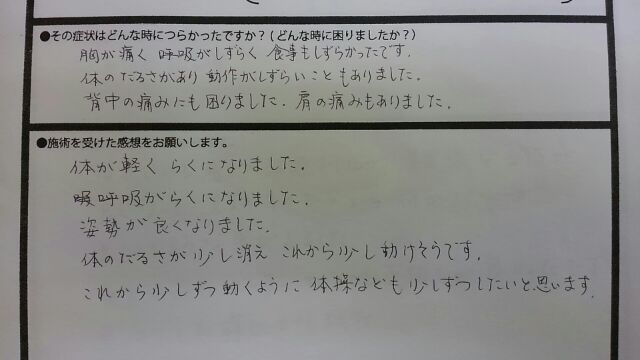 ●その症状はどんな時につらかったですか？(どんな時に困りましたか？)
胸が痛く 呼吸がしずらく 食事もしずらかったです.
体のだるさがあり 動作がしずらいこともありました.
背中の痛みにも困りました. 肩の痛みもありました.
●施術を受けた感想をお願いします。
体が軽く らくになりました.
呼吸がらくになりました.
姿勢が良くなりました.
体のだるさが少し消え これから少し動けそうです.
これから少しずつ動くように 体操なども少しずつしたいと思います.